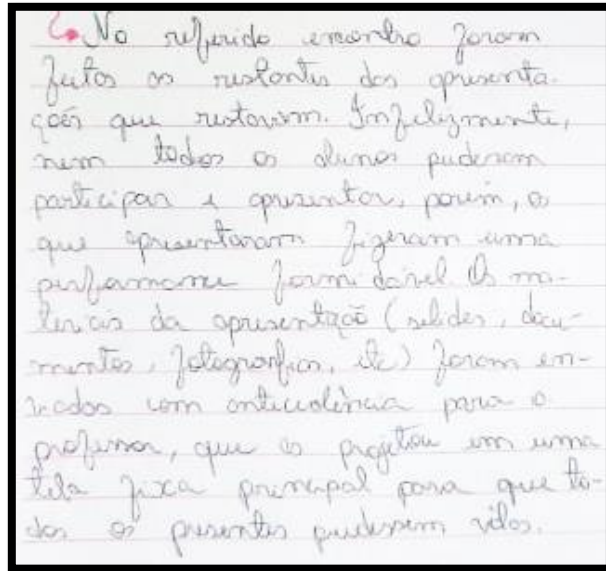 No referido encontro foram
feitos os restantes das apresenta-
ções que restavam. Infelizmente,
nem todos os alunos puderam
participar e apresentar, porém, os
que apresentaram fizeram uma
performance formidável. Os ma-
teriais da apresentação (slides, docu-
mentos, fotografias, etc) foram en-
viados com antecedência para o
professor, que os projetou em uma
tela fixa principal para que to-
dos os presentes pudessem vê-los.